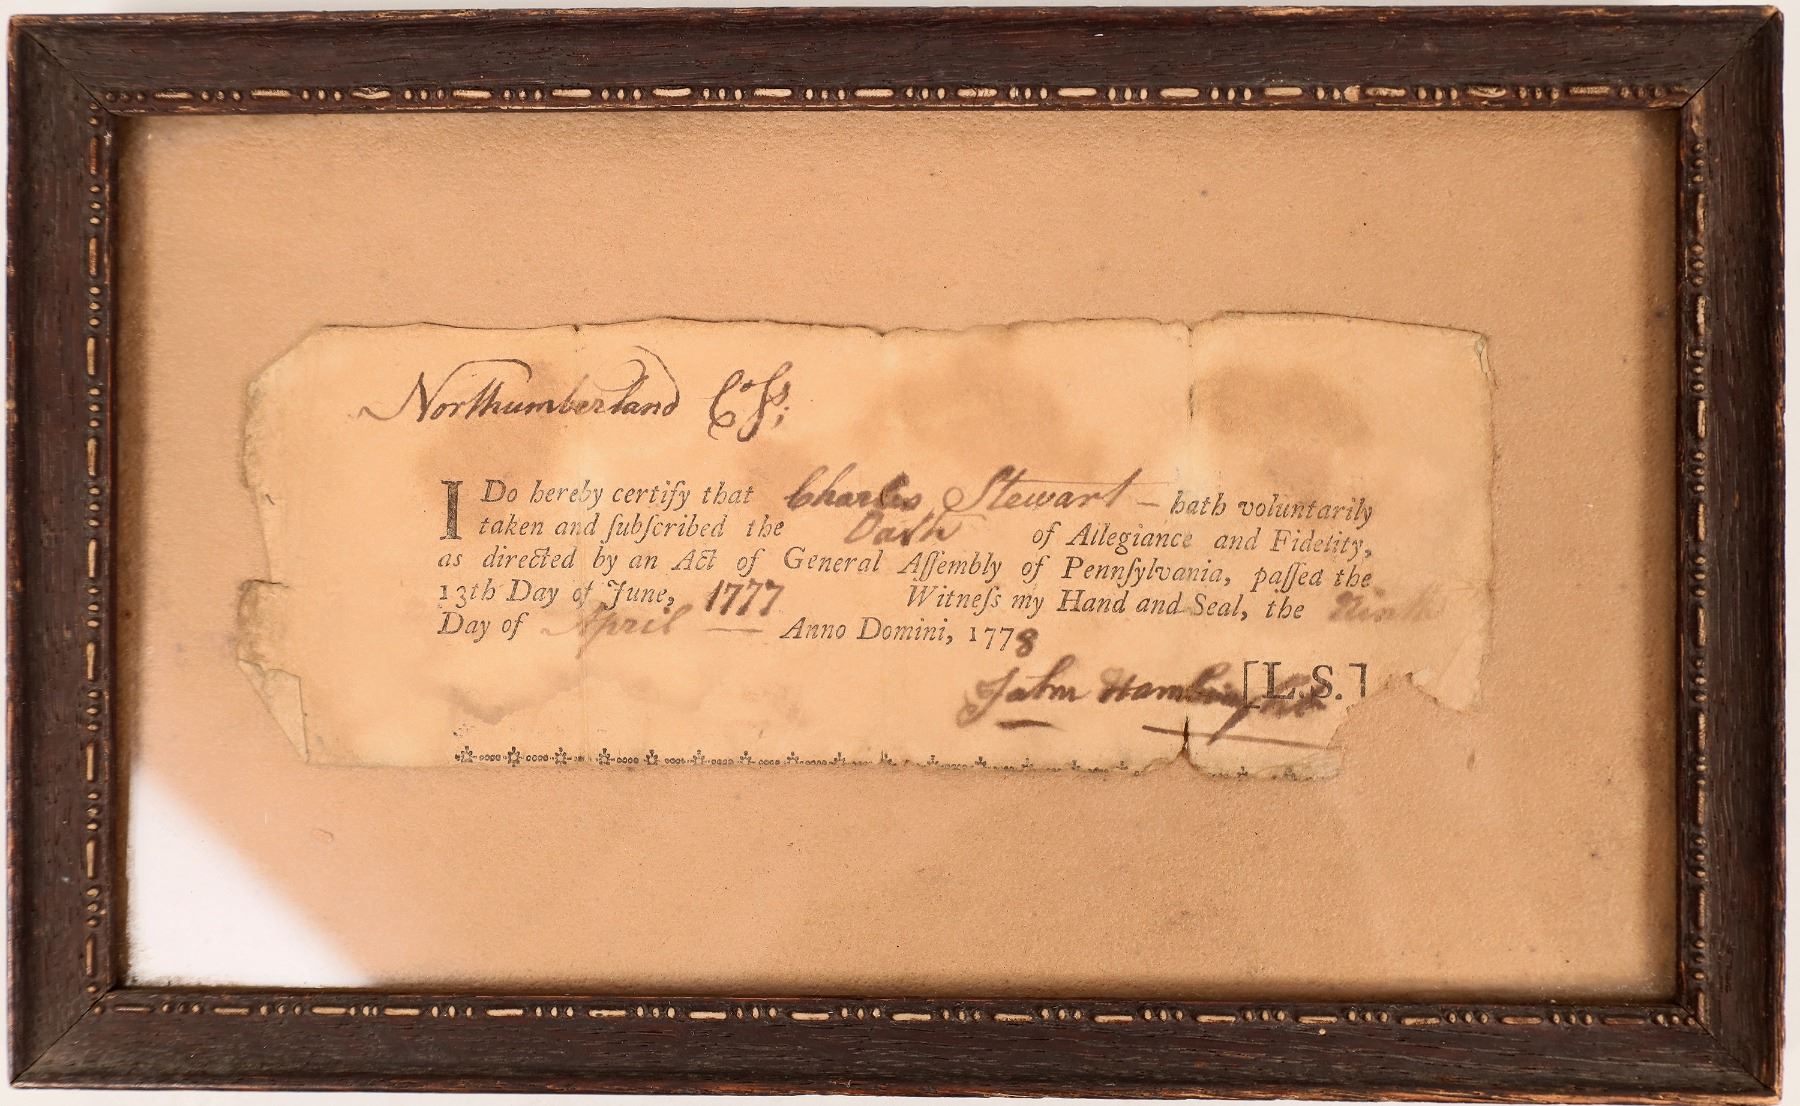 Northumberland Co. ſs;
I Do hereby certify that Charles Stewart — hath voluntarily
taken and ſubſcribed the Oath of Allegiance and Fidelity,
as directed by an Act of General Aſſembly of Pennſylvania, paſſed the
13th Day of June, 1777 Witneſs my Hand and Seal, the Ninth
Day of April — Anno Domini, 1778
John [L.S.]